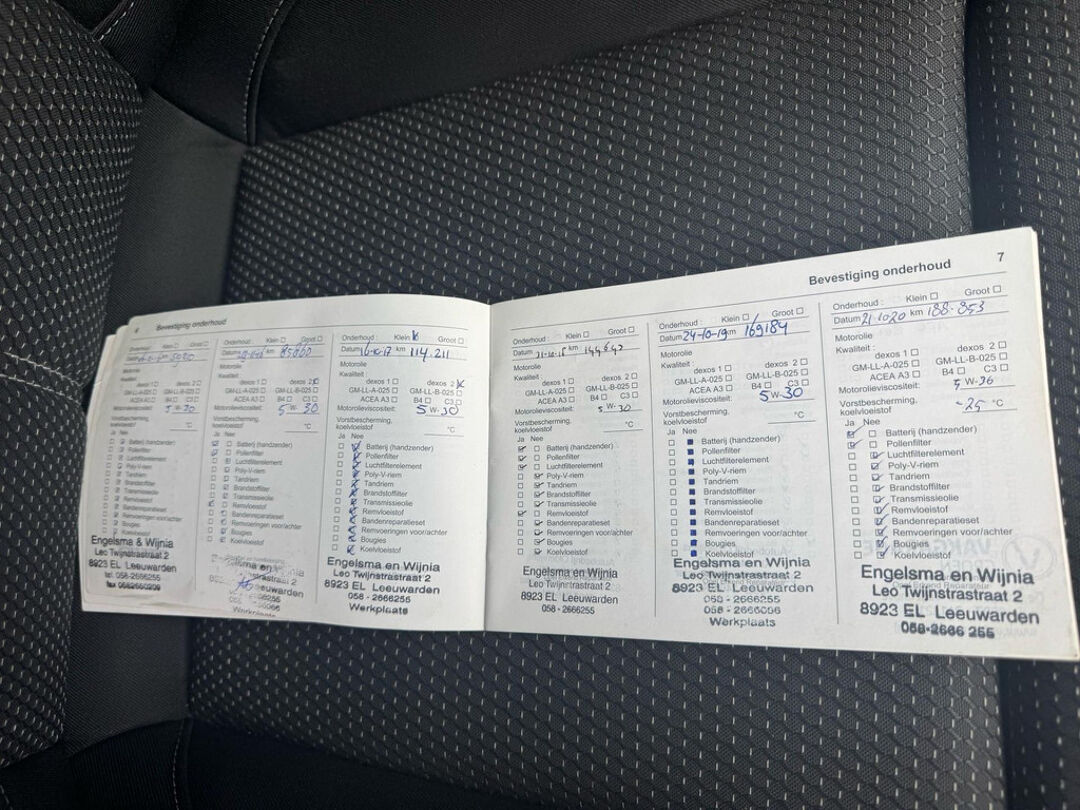 Bevestiging onderhoud
Onderhoud : Klein Groot
5030
Motorolie
Kwaliteit :
dexos 1 dexos 2
GM-LL-A-025 GM-LL-B-025
ACEA A3 B4 C3
Motorolieviscositeit: 5 W-30
Vorstbescherming,
koelvloeistof °C
Ja Nee
Batterij (handzender)
Pollenfilter
Luchtfilterelement
Poly-V-riem
Tandriem
Brandstoffilter
Transmissieolie
Remvloeistof
Bandenreparatieset
Remvoeringen voor/achter
Bougies
Koelvloeistof
Engelsma & Wijnia
Leo Twijnstrastraat 2
8923 EL Leeuwarden
tel. 058-2666255
Onderhoud : Klein Groot
Datum km 85060
Motorolie
Kwaliteit :
dexos 1 dexos 2
GM-LL-A-025 GM-LL-B-025
ACEA A3 B4 C3
Motorolieviscositeit: 5 W-30
Vorstbescherming,
koelvloeistof °C
Ja Nee
Batterij (handzender)
Pollenfilter
Luchtfilterelement
Poly-V-riem
Tandriem
Brandstoffilter
Transmissieolie
Remvloeistof
Bandenreparatieset
Remvoeringen voor/achter
Bougies
Koelvloeistof
Werkplaats
Onderhoud : Klein Groot
Datum 16-10-17 km 114.211
Motorolie
Kwaliteit :
dexos 1 dexos 2
GM-LL-A-025 GM-LL-B-025
ACEA A3 B4 C3
Motorolieviscositeit: 5 W-30
Vorstbescherming,
koelvloeistof °C
Ja Nee
Batterij (handzender)
Pollenfilter
Luchtfilterelement
Poly-V-riem
Tandriem
Brandstoffilter
Transmissieolie
Remvloeistof
Bandenreparatieset
Remvoeringen voor/achter
Bougies
Koelvloeistof
Engelsma en Wijnia
Leo Twijnstrastraat 2
8923 EL Leeuwarden
058 - 2666255
Werkplaats
Bevestiging onderhoud 7
Onderhoud : Klein Groot
Datum km
Motorolie
Kwaliteit :
dexos 1 dexos 2
GM-LL-A-025 GM-LL-B-025
ACEA A3 B4 C3
Motorolieviscositeit: 5 W-30
Vorstbescherming,
koelvloeistof °C
Ja Nee
Batterij (handzender)
Pollenfilter
Luchtfilterelement
Poly-V-riem
Tandriem
Brandstoffilter
Transmissieolie
Remvloeistof
Bandenreparatieset
Remvoeringen voor/achter
Bougies
Koelvloeistof
Engelsma en Wijnia
Leo Twijnstrastraat 2
8923 EL Leeuwarden
058 - 2666255
Onderhoud : Klein Groot
Datum 24-10-19 km 169184
Motorolie
Kwaliteit :
dexos 1 dexos 2
GM-LL-A-025 GM-LL-B-025
ACEA A3 B4 C3
Motorolieviscositeit: 5 W-30
Vorstbescherming,
koelvloeistof °C
Ja Nee
Batterij (handzender)
Pollenfilter
Luchtfilterelement
Poly-V-riem
Tandriem
Brandstoffilter
Transmissieolie
Remvloeistof
Bandenreparatieset
Remvoeringen voor/achter
Bougies
Koelvloeistof
Engelsma en Wijnia
Leo Twijnstrastraat 2
8923 EL Leeuwarden
058 - 2666255
Werkplaats
Onderhoud : Klein Groot
Datum 21-1020 km 188-853
Motorolie
Kwaliteit :
dexos 1 dexos 2
GM-LL-A-025 GM-LL-B-025
ACEA A3 B4 C3
Motorolieviscositeit: 5 W-
Vorstbescherming,
koelvloeistof -25 °C
Ja Nee
Batterij (handzender)
Pollenfilter
Luchtfilterelement
Poly-V-riem
Tandriem
Brandstoffilter
Transmissieolie
Remvloeistof
Bandenreparatieset
Remvoeringen voor/achter
Bougies
Koelvloeistof
Engelsma en Wijnia
Leo Twijnstrastraat 2
8923 EL Leeuwarden
058-2666 255